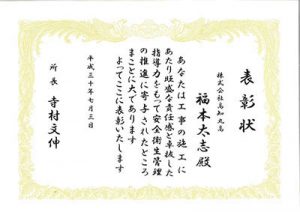 表彰状
株式会社高知丸高
福本太志殿
あなたは工事の施工に
あたり旺盛な責任感と卓抜した
指導力をもって安全衛生管理
の推進に寄与されたところ
まことに大であります
よってここに表彰いたします
平成三十年七月三日
所長 寺村文伸